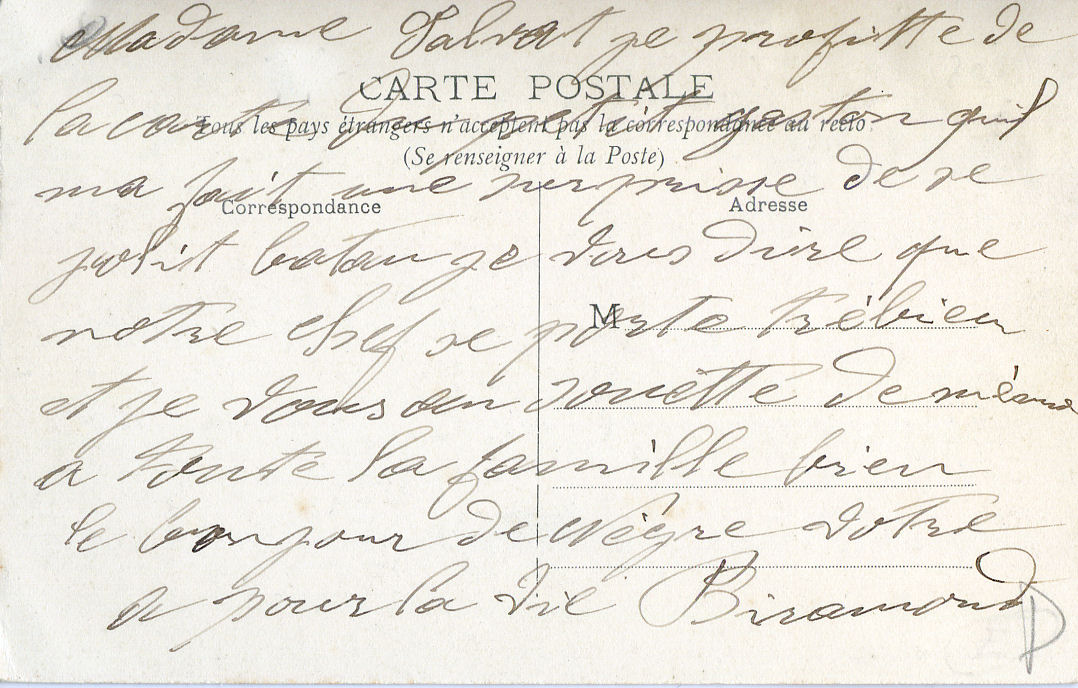 Madame Talvat je profitte de
CARTE POSTALE
la carte du petit gaston quil
Tous les pays étrangers n'acceptent pas la correspondance au recto.
(Se renseigner à la Poste)
ma fait une surprisse de se
Correspondance
Adresse
jolit batau je vous dirre que
M
notre chef se porte trébien
et je vous an souette de même
a toute la famille bien
le bonjour de Nègre votre
a pour la vie Biramond